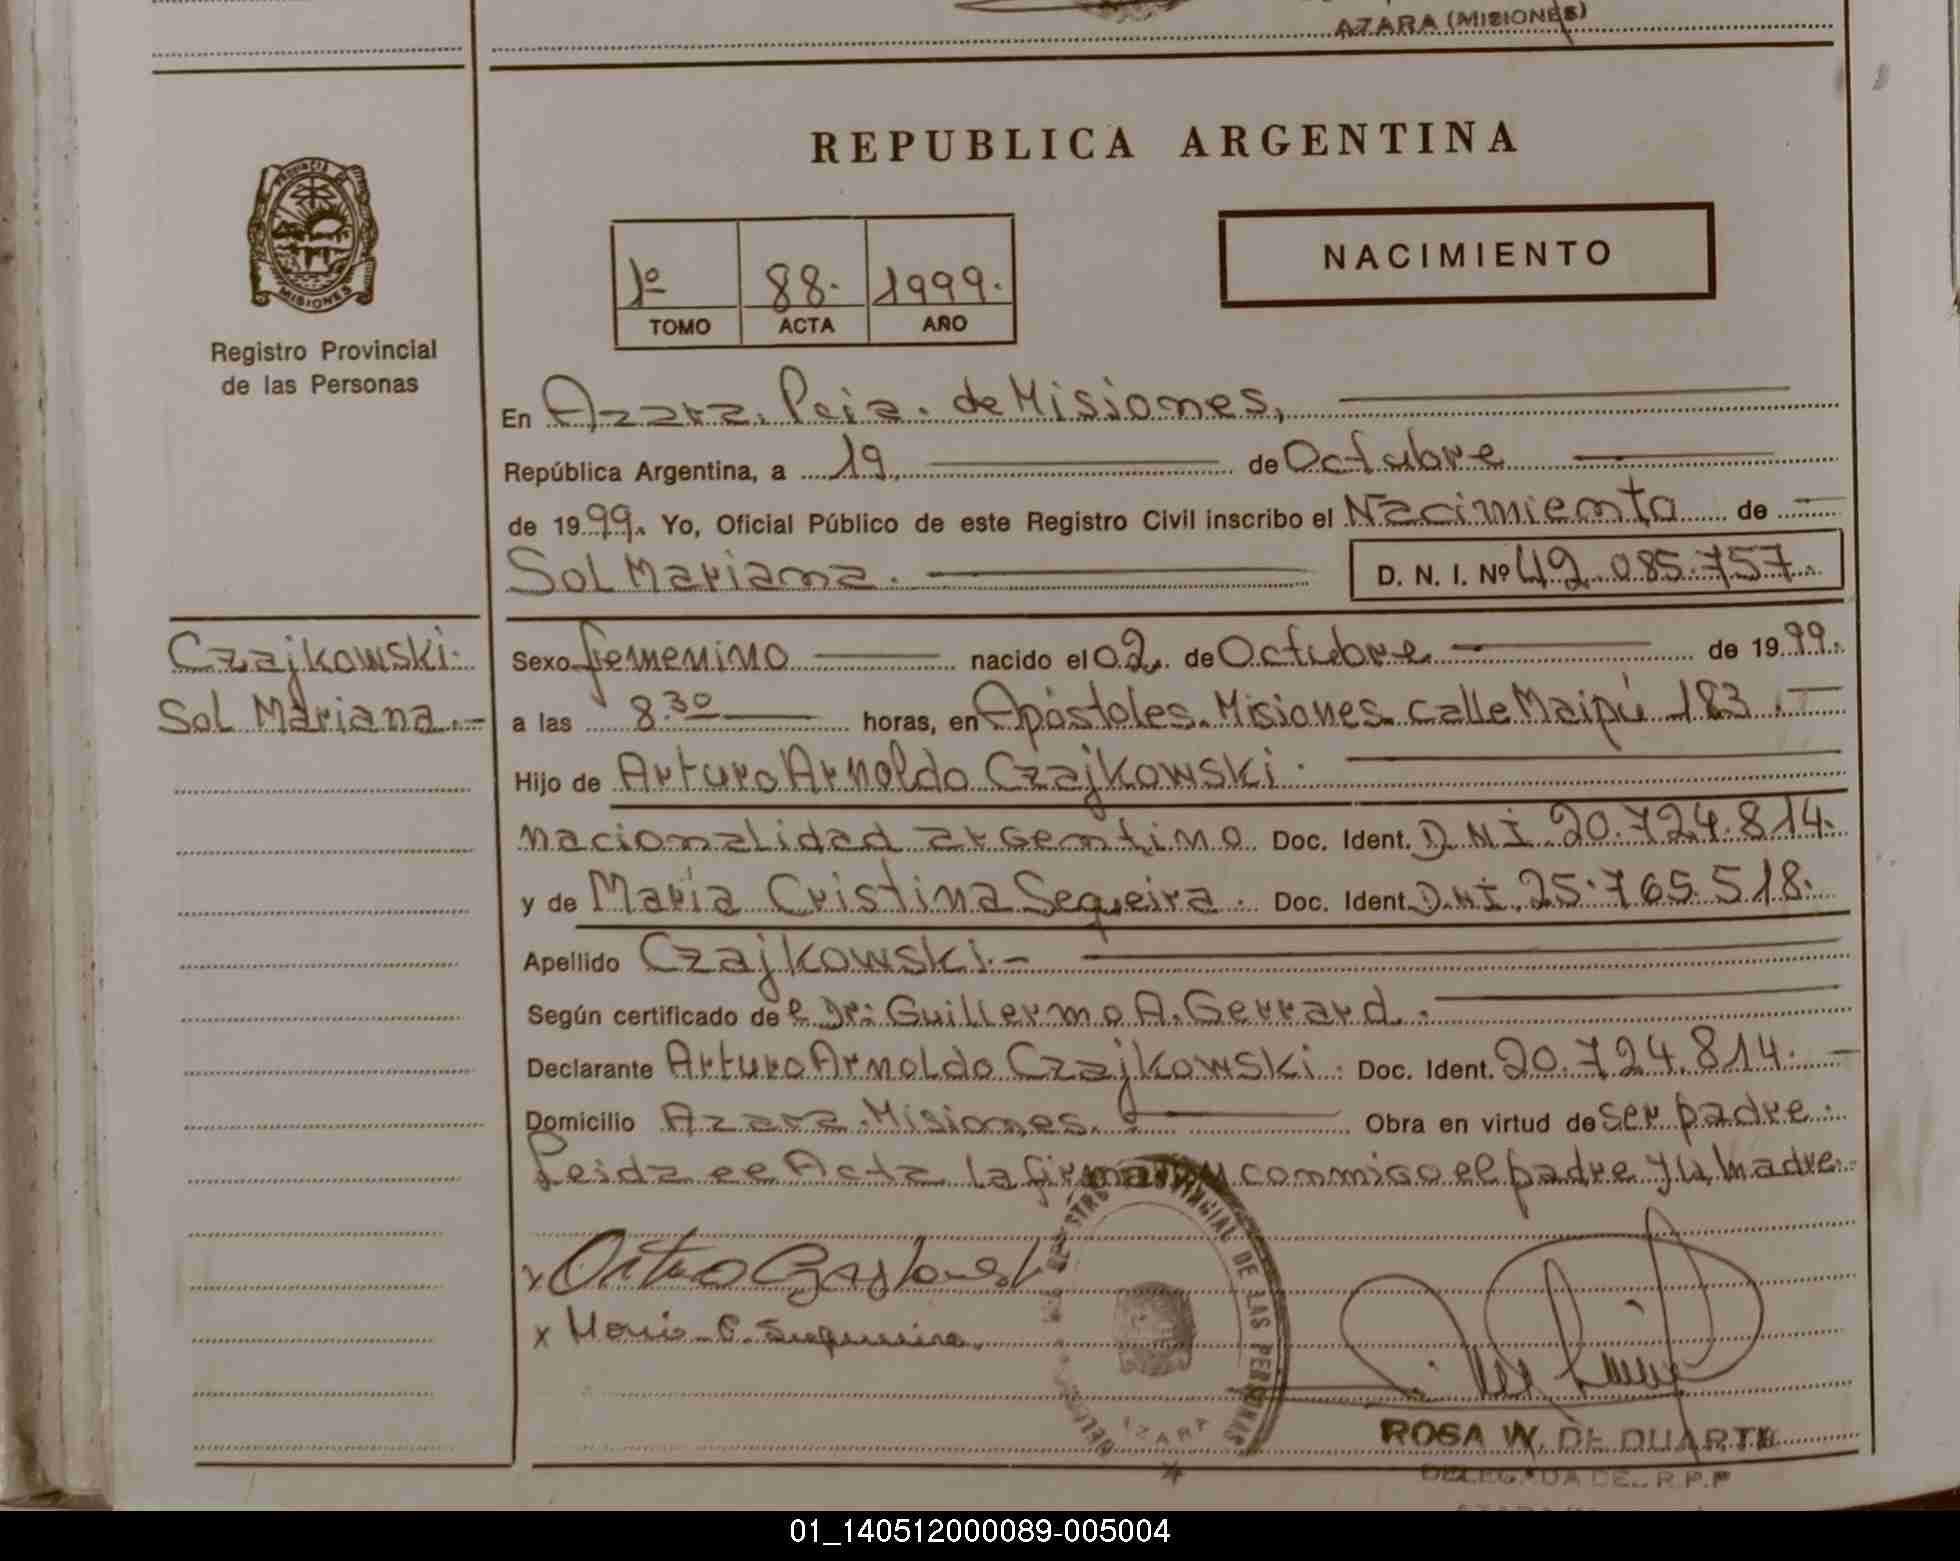 AZARA (MISIONES)
REPUBLICA ARGENTINA
PROVINCIA DE
MISIONES
Registro Provincial
de las Personas
1º 88. 1999.
TOMO ACTA AÑO
NACIMIENTO
En Azara. Pcia. de Misiones,
República Argentina, a 19 de Octubre
de 1999. Yo, Oficial Público de este Registro Civil inscribo el Nacimiento de
Sol Mariana. D. N. I. Nº 42.085.757.
Czajkowski.
Sol Mariana.-
Sexo femenino nacido el 02. de Octubre de 1999.
a las 8.30 horas, en Apóstoles. Misiones calle Maipú 183.
Hijo de Arturo Arnoldo Czajkowski.
nacionalidad argentino Doc. Ident. D.N.I. 20.724.814.
y de María Cristina Sequeira. Doc. Ident. D.N.I. 25.765.518.
Apellido Czajkowski.-
Según certificado de el Dr: Guillermo A. Gerrard.
Declarante Arturo Arnoldo Czajkowski. Doc. Ident. 20.724.814.
Domicilio Azara. Misiones. Obra en virtud de ser padre.
Leida el Acta la firman conmigo el padre y la Madre.
x Arturo Czajkowski
x Maria C. Sequeira
REGISTRO PROVINCIAL DE LAS PERSONAS
AZARA
ROSA W. DE DUARTE
DELEGADA DEL R.P.P
01_140512000089-005004